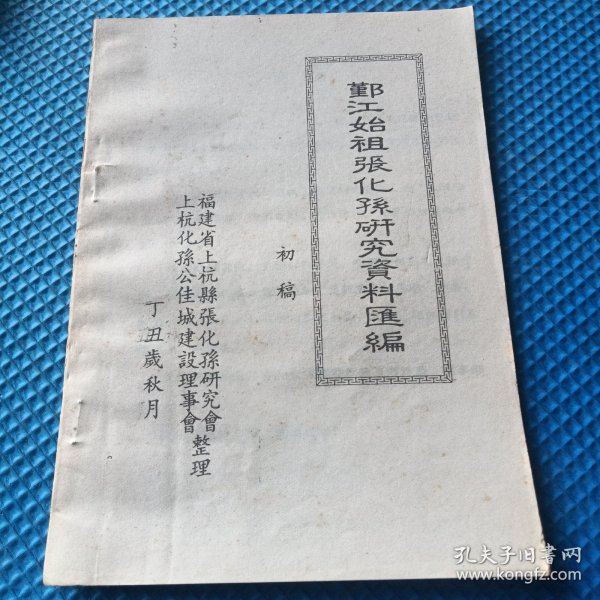 鄞江始祖張化孫硏究資料匯編
初稿
福建省上杭縣張化孫研究會
上杭化孫公佳城建設理事會整理
丁丑歲秋月
孔夫子旧书网
www.kongfz.com